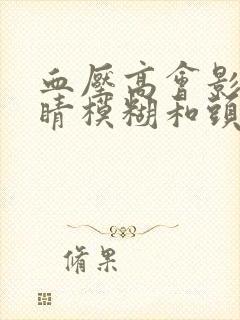 血壓高會影
睛模糊和頭
脩果